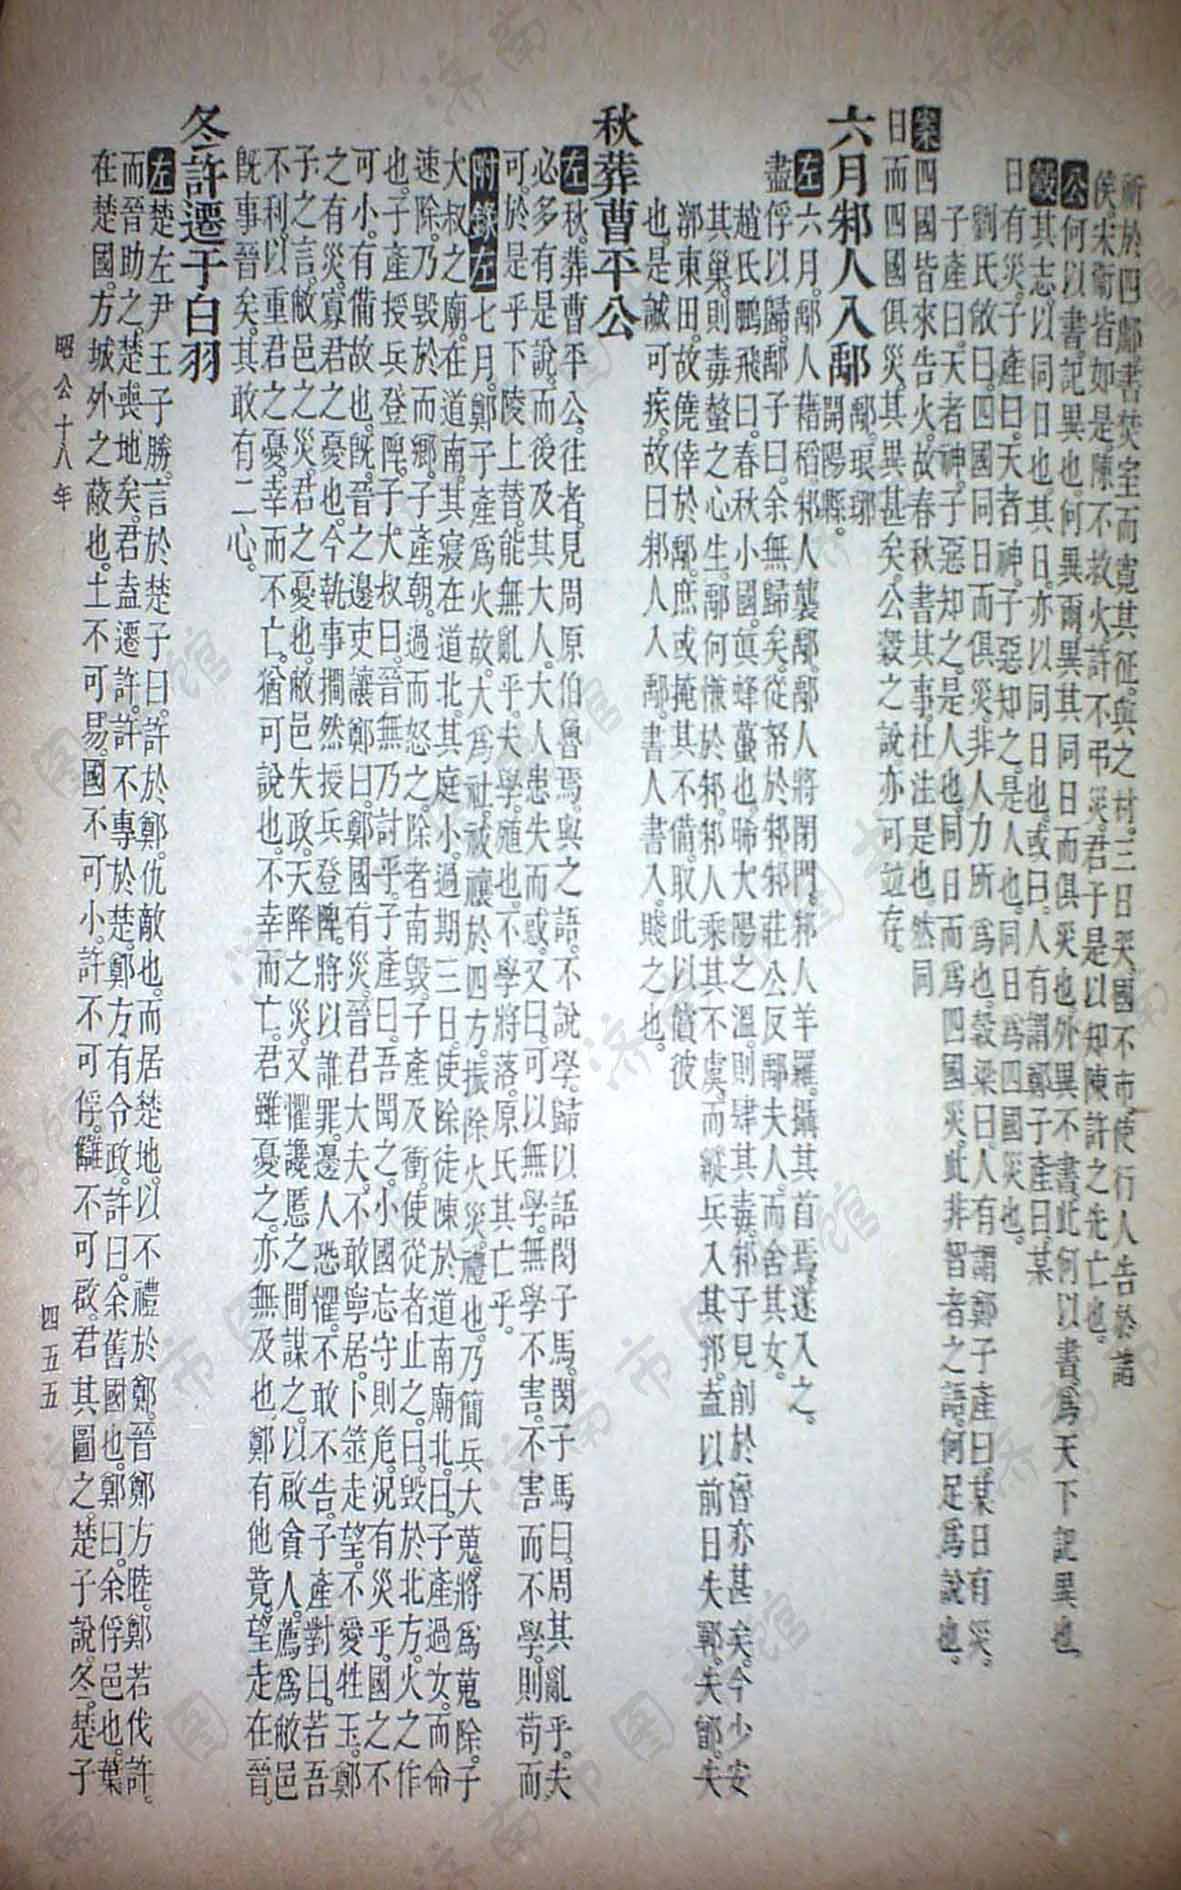 祈於四鄘。書焚室而寬其征。與之材。三日哭。國不市。使行人告於諸
侯。宋衞皆如是。陳不救火。許不弔災。君子是以知陳許之先亡也。
公何以書。記異也。何異爾。異其同日而俱災也。外異不書。此何以書。爲天下記異也。
穀其志。以同日也。其日。亦以同日也。或曰。人有謂鄭子產曰。某
日有災。子產曰。天者神。子惡知之。是人也。同日爲四國災也。
劉氏敞曰。四國同日而俱災。非人力所爲也。穀梁曰。人有謂鄭子產曰。某日有災。
子產曰。天者神。子惡知之。是人也。同日而爲四國災。此非智者之語。何足爲說也。
案四國皆來告火。故春秋書其事。杜注是也。然同
日而四國俱災。其異甚矣。公穀之說。亦可並存。
六月邾人入鄅
鄅。琅琊
開陽縣。
左六月。鄅人藉稻。邾人襲鄅。鄅人將閉門。邾人羊羅。攝其首焉。遂入之。
盡俘以歸。鄅子曰。余無歸矣。從帑於邾。邾莊公反鄅夫人。而舍其女。
趙氏鵬飛曰。春秋小國。眞蜂蠆也。晞大陽之溫。則肆其毒。邾子見削於魯亦甚矣。今少安
其巢。則毒螫之心生。鄅何慊於邾。邾人乘其不虞。而縱兵入其郛。蓋以前日失鄆。失鄫。失
漷東田。故僥倖於鄅。庶或掩其不備。取此以償彼
也。是誠可疾。故曰邾人入鄅。書人書入。賤之也。
秋葬曹平公
左秋。葬曹平公。往者。見周原伯魯焉。與之語。不說學。歸以語閔子馬。閔子馬曰。周其亂乎。夫
必多有是說。而後及其大人。大人患失而惑。又曰。可以無學。無學不害。不害而不學。則苟而
可。於是乎下陵上替。能無亂乎。夫學。殖也。不學將落。原氏其亡乎。
附錄左七月。鄭子產爲火故。大爲社。祓禳於四方。振除火災。禮也。乃簡兵大蒐。將爲蒐除。子
大叔之廟。在道南。其寢在道北。其庭小。過期三日。使除徒陳於道南廟北。曰。子產過女。而命
速除。乃毀於而鄉。子產朝。過而怒之。除者南毀。子產及衝。使從者止之。曰。毀於北方。火之作
也。子產授兵登陴。子大叔曰。晉無乃討乎。子產曰。吾聞之。小國忘守則危。況有災乎。國之不
可小。有備故也。旣。晉之邊吏讓鄭曰。鄭國有災。晉君大夫。不敢寧居。卜筮走望。不愛牲玉。鄭
之有災。寡君之憂也。今執事撊然授兵登陴。將以誰罪。邊人恐懼。不敢不告。子產對曰。若吾
子之言。敝邑之災。君之憂也。敝邑失政。天降之災。又懼讒慝之間謀之。以啟貪人。薦爲敝邑
不利。以重君之憂。幸而不亡。猶可說也。不幸而亡。君雖憂之。亦無及也。鄭有他竟。望走在晉。
旣事晉矣。其敢有二心。
冬許遷于白羽
左楚左尹王子勝。言於楚子曰。許於鄭。仇敵也。而居楚地。以不禮於鄭。晉鄭方睦。鄭若伐許。
而晉助之。楚喪地矣。君盍遷許。許不專於楚。鄭方有令政。許曰。余舊國也。鄭曰。余俘邑也。葉
在楚國。方城外之蔽也。土不可易。國不可小。許不可俘。讎不可啟。君其圖之。楚子說。冬。楚子
昭公十八年
四五五